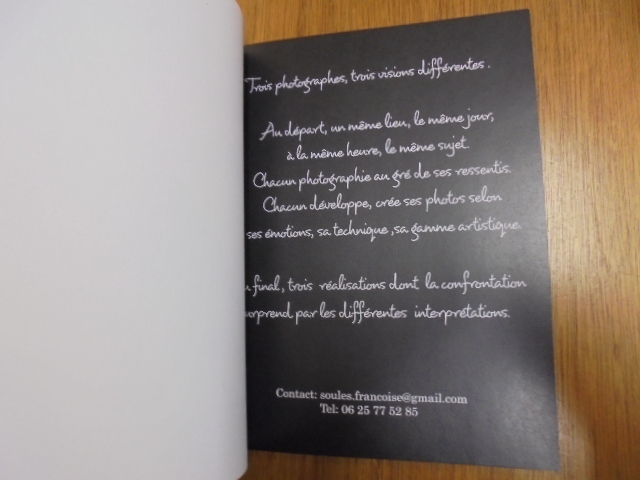 Trois photographes, trois visions différentes.
Au départ, un même lieu, le même jour,
à la même heure, le même sujet.
Chacun photographie au gré de ses ressentis.
Chacun développe, crée ses photos selon
ses émotions, sa technique ,sa gamme artistique.
final, trois réalisations dont la confrontation
par les différentes interprétations.
Contact: soules.francoise@gmail.com
Tel: 06 25 77 52 85